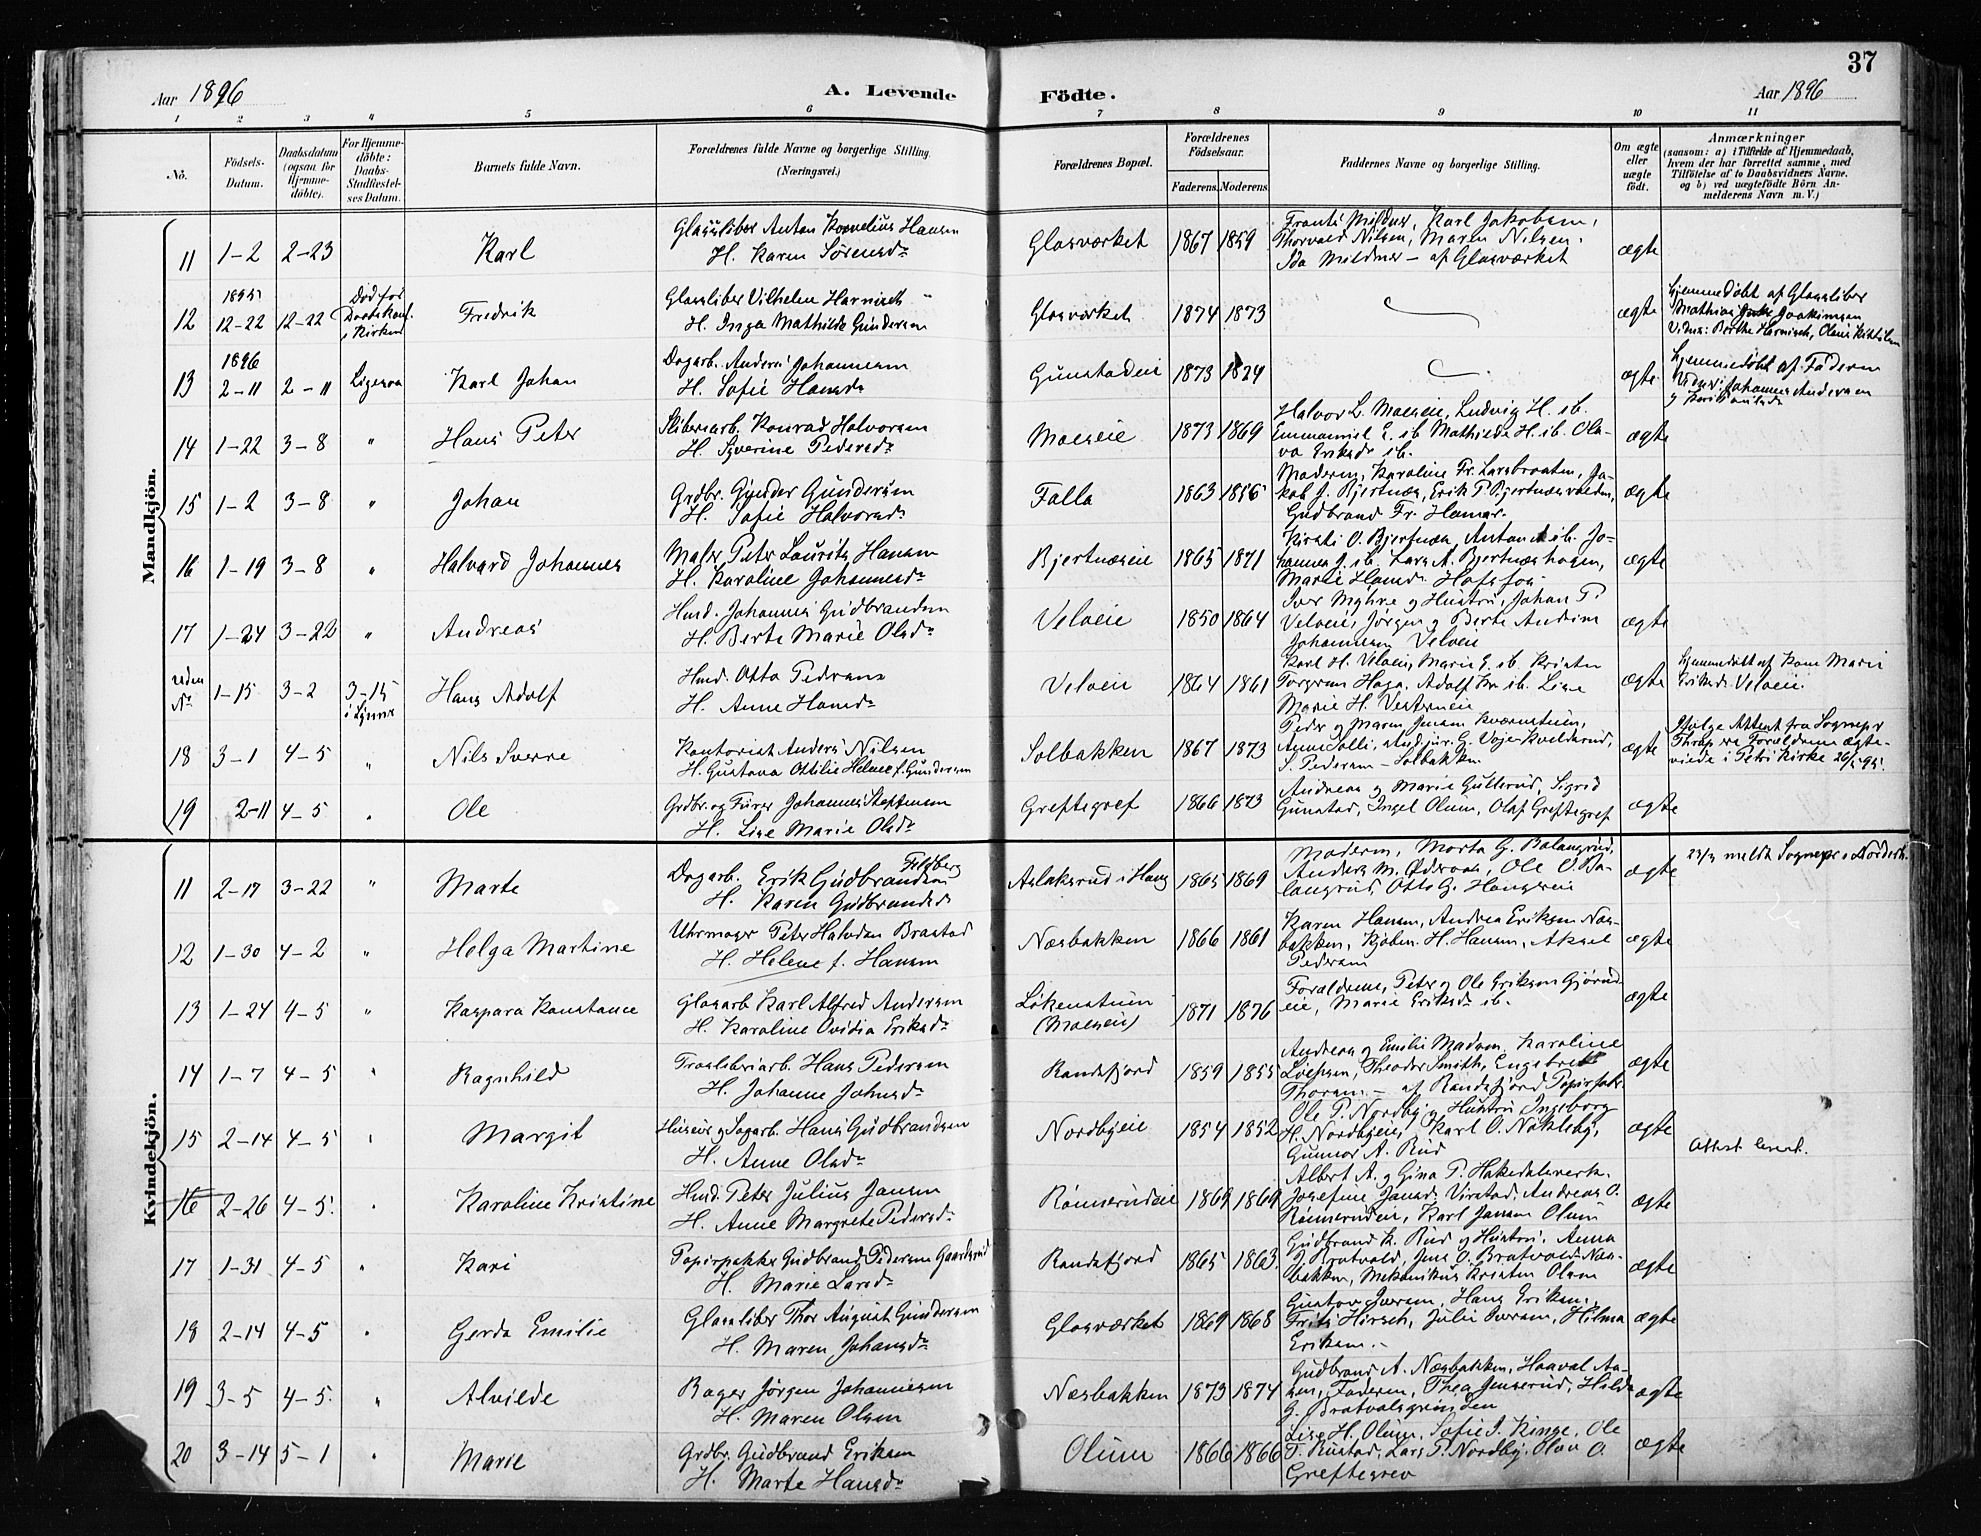 37
Aar 1896
A. Levende Födte.
Aar 1896
1 2 3 4 5 6 7 8 9 10 11
No.
Födsels-Datum.
Daabsdatum (ogsaa for Hjemme-döbte).
For Hjemme-döbte: Daabs-Stadfæstel-ses Datum.
Barnets fulde Navn.
Forældrenes fulde Navne og borgerlige Stilling. (Næringsvei.)
Forældrenes Bopæl.
Forældrenes Födselsaar.
Faderens. Moderens.
Faddernes Navne og borgerlige Stilling.
Om ægte eller uægte födt.
Anmærkninger
(saasom: a) i Tilfælde af Hjemmedaab,
hvem der har forrettet samme, med
Tilföielse af to Daabsvidners Navne.
og b) ved uægtefödte Börn An-
melderens Navn m. V.)
Mandkjön.
11 1-2 2-23 Karl
Glassliber Anton Kornelius Hansen
H. Karen Sørensdr
Glasværket 1867 1859
Thorvald Nilsen, Maren Nilsen,
Ida Mildner - af Glasværket
ægte
12 1895 12-22 12-22 Død før Daabskonf. i Kirken Fredrik
Glassliber Vilhelm Harnisch
H. Inga Mathilde Gundersen
Glasværket 1874 1873 ægte
Hjemmedøbt af Glassliber
Mathias Joakimsen
Vidner: Berthe Harnisch,
13 1896 2-11 2-11 Ligesaa Karl Johan
Dagarb. Anders Johannesen
H. Sofie Hansdr
Gunstadeie 1873 1874 ægte
Hjemmedøbt af Faderen
Vidner: Johannes Andersen
14 1-22 3-8 " Hans Peter
Sliberiarb. Konrad Halvorsen
H. Syverine Pedersdr
Moeseie 1873 1869
Halvor L. Moeseie, Ludvig H. ib.
Emmanuel E. ib. Mathilde H. ib. Ola-
va Eriksdr ib.
ægte
15 1-2 3-8 " Johan
Grdbr. Gunder Gundersen
H. Sofie Halvorsdr
Falla 1863 1856
Moderen, Karoline Fr. Larsbraaten, Ja-
kob J. Bjertnæs, Erik P. Bjertnæsvolden,
Gudbrand Fr. Hamar.
ægte
16 1-19 3-8 " Halvard Johannes
Maler Peter Lauritz Hansen
H. Karoline Johannesdr
Bjertnæseie 1865 1871
Kirsti O. Bjertnæs, Anton A. ib. Jo-
hannes J. ib. Lars A. Bjertnæshagen,
Marie Hansdr Hofsfos.
ægte
17 1-24 3-22 " Andreas
Husd. Johannes Gudbrandsen
H. Berte Marie Olsdr
Veloeie 1850 1864
Iver Myhre og Hustru, Johan P.
Veloeie, Jørgen og Berte Andrine
Johannesen Veloeie
ægte
uden No 1-15 3-2 3-15 i Hans Adolf
Husd. Otto Pedersen
H. Anne Hansdr
Veloeie 1864 1861
Karl H. Veloeie, Marie E. ib. Kristen
Torgersen Haga, Adolf Kr. ib. Lise
Marie H. Vesterneie
ægte
Hjemmedøbt af Kone Marie
Eriksdr Veloeie.
18 3-1 4-5 " Nils Sverre
Kontorist Anders Nilsen
H. Gustava Ottilie Helene f. Gundersen
Solbakken 1867 1873
Peder og Maren Jensen Kværnstuen,
Anne Solli, stud. jur. G. Voje-Kvelderud,
S. Pedersen - Solbakken.
ægte
Ifølge Attest fra Sognepr
Thrap ere Forældrene ægte-
viede i Petri Kirke 26/5 95.
19 2-11 4-5 " Ole
Grdbr. og Furer Johannes Steffensen
H. Lise Marie Olsdr
Greftegref 1866 1873
Andreas og Marie Gullerud, Sigrid
Gunstad, Ingel Olum, Olaf Greftegref
ægte
Kvindekjön.
11 2-17 3-22 " Marte
Dagarb. Erik Gudbrandsen Feldberg
H. Karen Gudbrandsdr
Aslaksrud i Haug 1865 1869
Moderen, Marta G. Bølangrud,
Anders M. Ødervaa, Ole O. Bø-
langrud, Otto G. Haugseie
ægte
23/3 meldt Sognepr i Norderh.
12 1-30 4-2 " Helga Martine
Uhrmager Peter Halvdan Brastad
H. Helene f. Hansen
Næsbakken 1866 1861
Karen Hansen, Andrea Eriksen Næs-
bakken, Kjøbm. H. Hansen, Aksel
Pedersen
ægte
13 1-24 4-5 " Kaspara Konstance
Glasarb Karl Alfred Andersen
H. Karoline Ovidia Eriksdr
Løkenstuen (Moeseie) 1871 1876
Forældrene, Peter og Ole Eriksen Gjørud-
eie, Marie Eriksdr ib.
ægte
14 1-7 4-5 " Ragnhild
Træsliberiarb. Hans Pedersen
H. Johanne Johnsdr
Randsfjord 1859 1855
Andreas og Emilie Madsen, Karoline
Theodor Smith, Engebret
Thoresen - af Randsfjord Papirfabr
ægte
15 2-14 4-5 " Margit
Huseier og Sagarb. Hans Gudbrandsen
H. Anne Olsdr
Nordbyeie 1854 1852
Ole P. Nordby og Hustru Ingeborg
H. Nordbyeie, Karl O. Nøkleby,
Gunnor A. Rud
ægte
Attest levert.
16 2-26 4-5 " Karoline Kristine
Husd. Peter Julius Jansen
H. Anne Margrete Pedersdr
Rømserudeie 1869 1869
Albert A. og Gina P. Hakedalsverk.
Josefine Jansdr Virstad, Andreas O.
Rømserudeie, Karl Jansen Olum
ægte
17 1-31 4-5 " Kari
Papirpakker Gudbrand Pedersen Gaardsrud
H. Marie Larsdr
Randsfjord 1865 1863
Gudbrand K. Rud og Hustru, Anna
J. Bratvold, Jens O. Bratvold-Næs-
bakken, Mekanikus Kristen Olsen
ægte
18 2-14 4-5 " Gerda Emilie
Glassliber Thor August Gundersen
H. Maren Johansdr
Glasværket 1869 1868
Gustav Iversen, Hans Eriksen,
Frits Hirsch, Julie Iversen, Hilma
Eriksen.-
ægte
19 3-5 4-5 " Alvilde
Bager Jørgen Johannesen
H. Maren Olsen
Næsbakken 1873 1874
Gudbrand A. Næsbakken, Haaval Aa-
sen, Faderen, Thea Jenserud, Hilda
G. Bratvalsgrinden
ægte
20 3-14 5-1 " Marie
Grdbr. Gudbrand Eriksen
H. Marte Hansdr
Olum 1866 1866
Lise H. Olum, Sofie J. Kinge, Ole
T. Rustad, Lars P. Nordby, Olav O.
Greftegrev
ægte